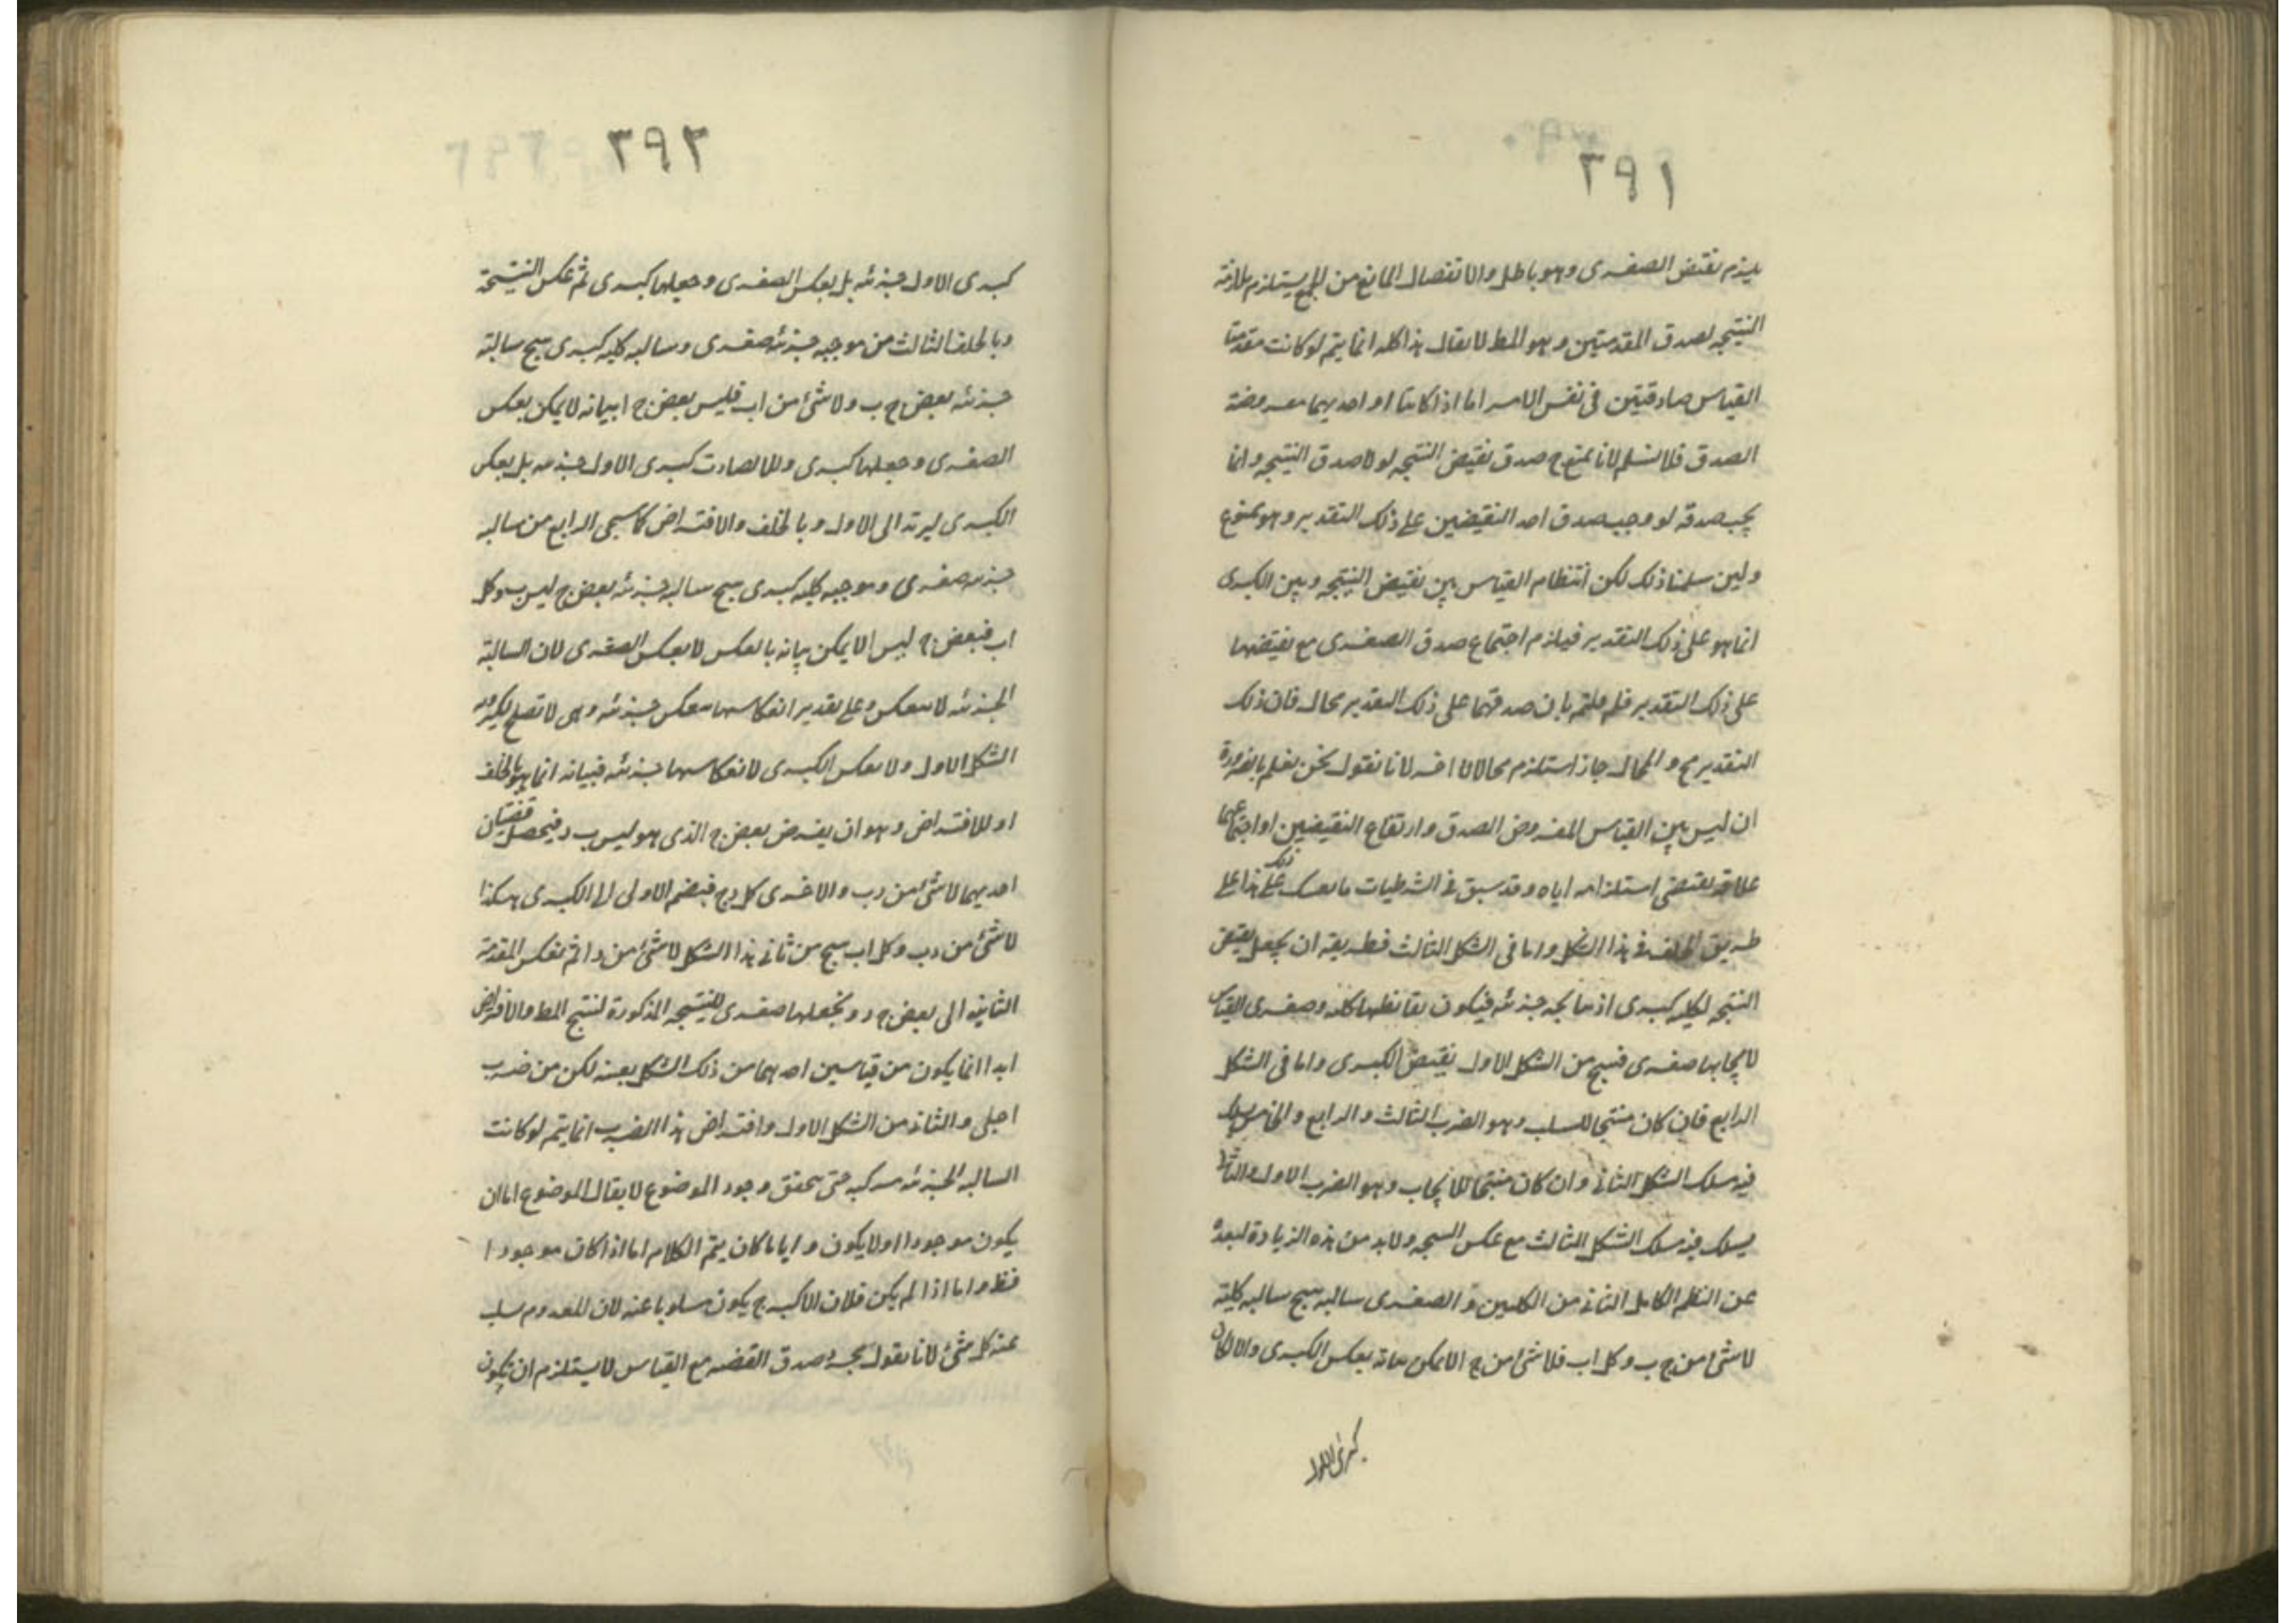 ٣٩١
يلزم نقيض الصغرى وهو باطل والانفصال المانع من الجمع يستلزم ملازمة
النتيجة لصدق المقدمتين وهو المط لا يقال هذا كله انما يتم لو كانت مقدمتا
القياس صادقتين فى نفس الامر اما اذا كانتا او احديهما مفروضة
الصدق فلا نسلم لانا نمنع ح صدق نقيض النتيجه لولا صدق النتيجه وانما
يجب صدقه لو وجب صدق احد النقيضين على ذلك التقدير وهو ممنوع
ولين سلمنا ذلك لكن انتظام القياس بين نقيض النتيجه وبين الكبرى
انما هو على ذلك التقدير فيلزم اجتماع صدق الصغرى مع نقيضها
على ذلك التقدير فلم قلتم بان صدقهما على ذلك التقدير محال فان ذلك
التقدير مح والمحال جاز استلزم محالا اخر لانا نقول نحن نعلم بالضرورة
ان ليس بين القياس المفروض الصدق وارتفاع النقيضين او اجتماعهما
علاقه يقتضى استلزامه اياه وقد سبق فى الشرطيات ما على ذلك هذا على
طريق الخلف فى هذا الشكل واما فى الشكل الثالث فطريقه ان يجعل نقيض
النتيجه لكليه كبرى اذ نتايجه جزئيه فيكون نقايضها كليه وصغرى القياس
لايجابها صغرى فينتج من الشكل الاول نقيض الكبرى واما فى الشكل
الرابع فان كان منتجا للسلب وهو الضرب الثالث والرابع والخامس يسلك
فيه مسلك الشكل الثانى وان كان منتجا للايجاب وهو الضرب الاول والثانى
يسلك فيه مسلك الشكل الثالث مع عكس النتيجه ولابد من هذه الزيادة لبعده
عن النظم الكامل الثانى من الكليتين والصغرى سالبه ينتج سالبه كلية
لاشئ من ج ب وكل اب فلا شئ من ج ا لايمكن بيانه بعكس الكبرى والا لكان
كبرى الاول
٣٩٢
كبرى الاول جزئيه بل بعكس الصغرى وجعلها كبرى ثم عكس النتيجة
وبالخلف الثالث من موجبه جزئيه صغرى وسالبه كليه كبرى ينتج سالبة
جزئيه بعض ج ب ولاشئ من اب فليس بعض ج ا بيانه لايمكن بعكس
الصغرى وجعلها كبرى والا لصارت كبرى الاول جزئيه بل بعكس
الكبرى ليرتد الى الاول وبالخلف والافتراض كما سيجى الرابع من سالبه
جزئيه صغرى وموجبه كليه كبرى ينتج سالبه جزئيه بعض ج ليس ب وكل
اب فبعض ج ليس ا لايمكن بيانه بالعكس لا بعكس الصغرى لان السالبة
الجزئيه لا تنعكس وعلى تقدير انعكاسها تنعكس جزئيه وهى لا تصلح لكبرويه
الشكل الاول ولا بعكس الكبرى لانعكاسها جزئيه فبيانه انما هو بالخلف
او الافتراض وهو ان يفرض بعض ج الذى هو ليس ب د فيحصل قضيتان
احديهما لاشئ من د ب والاخرى كل د ج فيضم الاولى الى الكبرى هكذا
لاشئ من د ب وكل اب ينتج من ثانى هذا الشكل لاشئ من د ا ثم نعكس المقدمة
الثانيه الى بعض ج د ونجعلها صغرى للنتيجه المذكورة لينتج المط والافتراض
ابدا انما يكون من قياسين احدهما من ذلك الشكل بعينه لكن من ضرب
اجلى والثانى من الشكل الاول وافتراض هذا الضرب انما يتم لو كانت
السالبه الجزئيه مركبه حتى يتحقق وجود الموضوع لا يقال الموضوع اما ان
يكون موجودا اولا يكون وايا ما كان يتم الكلام اما اذا كان موجودا
فظ واما اذا لم يكن فلان الاكبر ح يكون مسلوبا عنه لان المعدوم سلب
عنه كل شئ لانا نقول مجرد صدق القضيه مع القياس لا يستلزم ان يكون